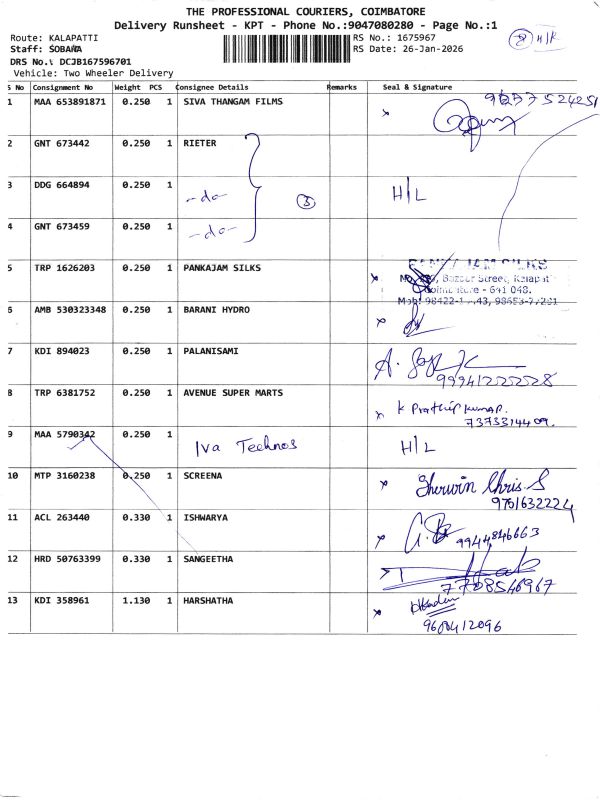 THE PROFESSIONAL COURIERS, COIMBATORE
Delivery Runsheet - KPT - Phone No.:9047080280 - Page No.:1
Route: KALAPATTI
RS No.: 1675967
Staff: SOBANA
RS Date: 26-Jan-2026
DRS No.: DCJB167596701
Vehicle: Two Wheeler Delivery
S No Consignment No Weight PCS Consignee Details Remarks Seal & Signature
1 MAA 653891871 0.250 1 SIVA THANGAM FILMS
2 GNT 673442 0.250 1 RIETER
3 DDG 664894 0.250 1 -do- H/L
4 GNT 673459 0.250 1 -do-
5 TRP 1626203 0.250 1 PANKAJAM SILKS
PANKAJAM SILKS
Bazaar Street, Kalapat
Coimbatore - 641 048.
6 AMB 530323348 0.250 1 BARANI HYDRO
7 KDI 894023 0.250 1 PALANISAMI
8 TRP 6381752 0.250 1 AVENUE SUPER MARTS K Prathip kumar.
7373314409.
9 MAA 5790342 0.250 1 Iva Technos H/L
10 MTP 3160238 0.250 1 SCREENA Sherwin Chris.S
9751632224
11 ACL 263440 0.330 1 ISHWARYA
9944846663
12 HRD 50763399 0.330 1 SANGEETHA
7708546967
13 KDI 358961 1.130 1 HARSHATHA